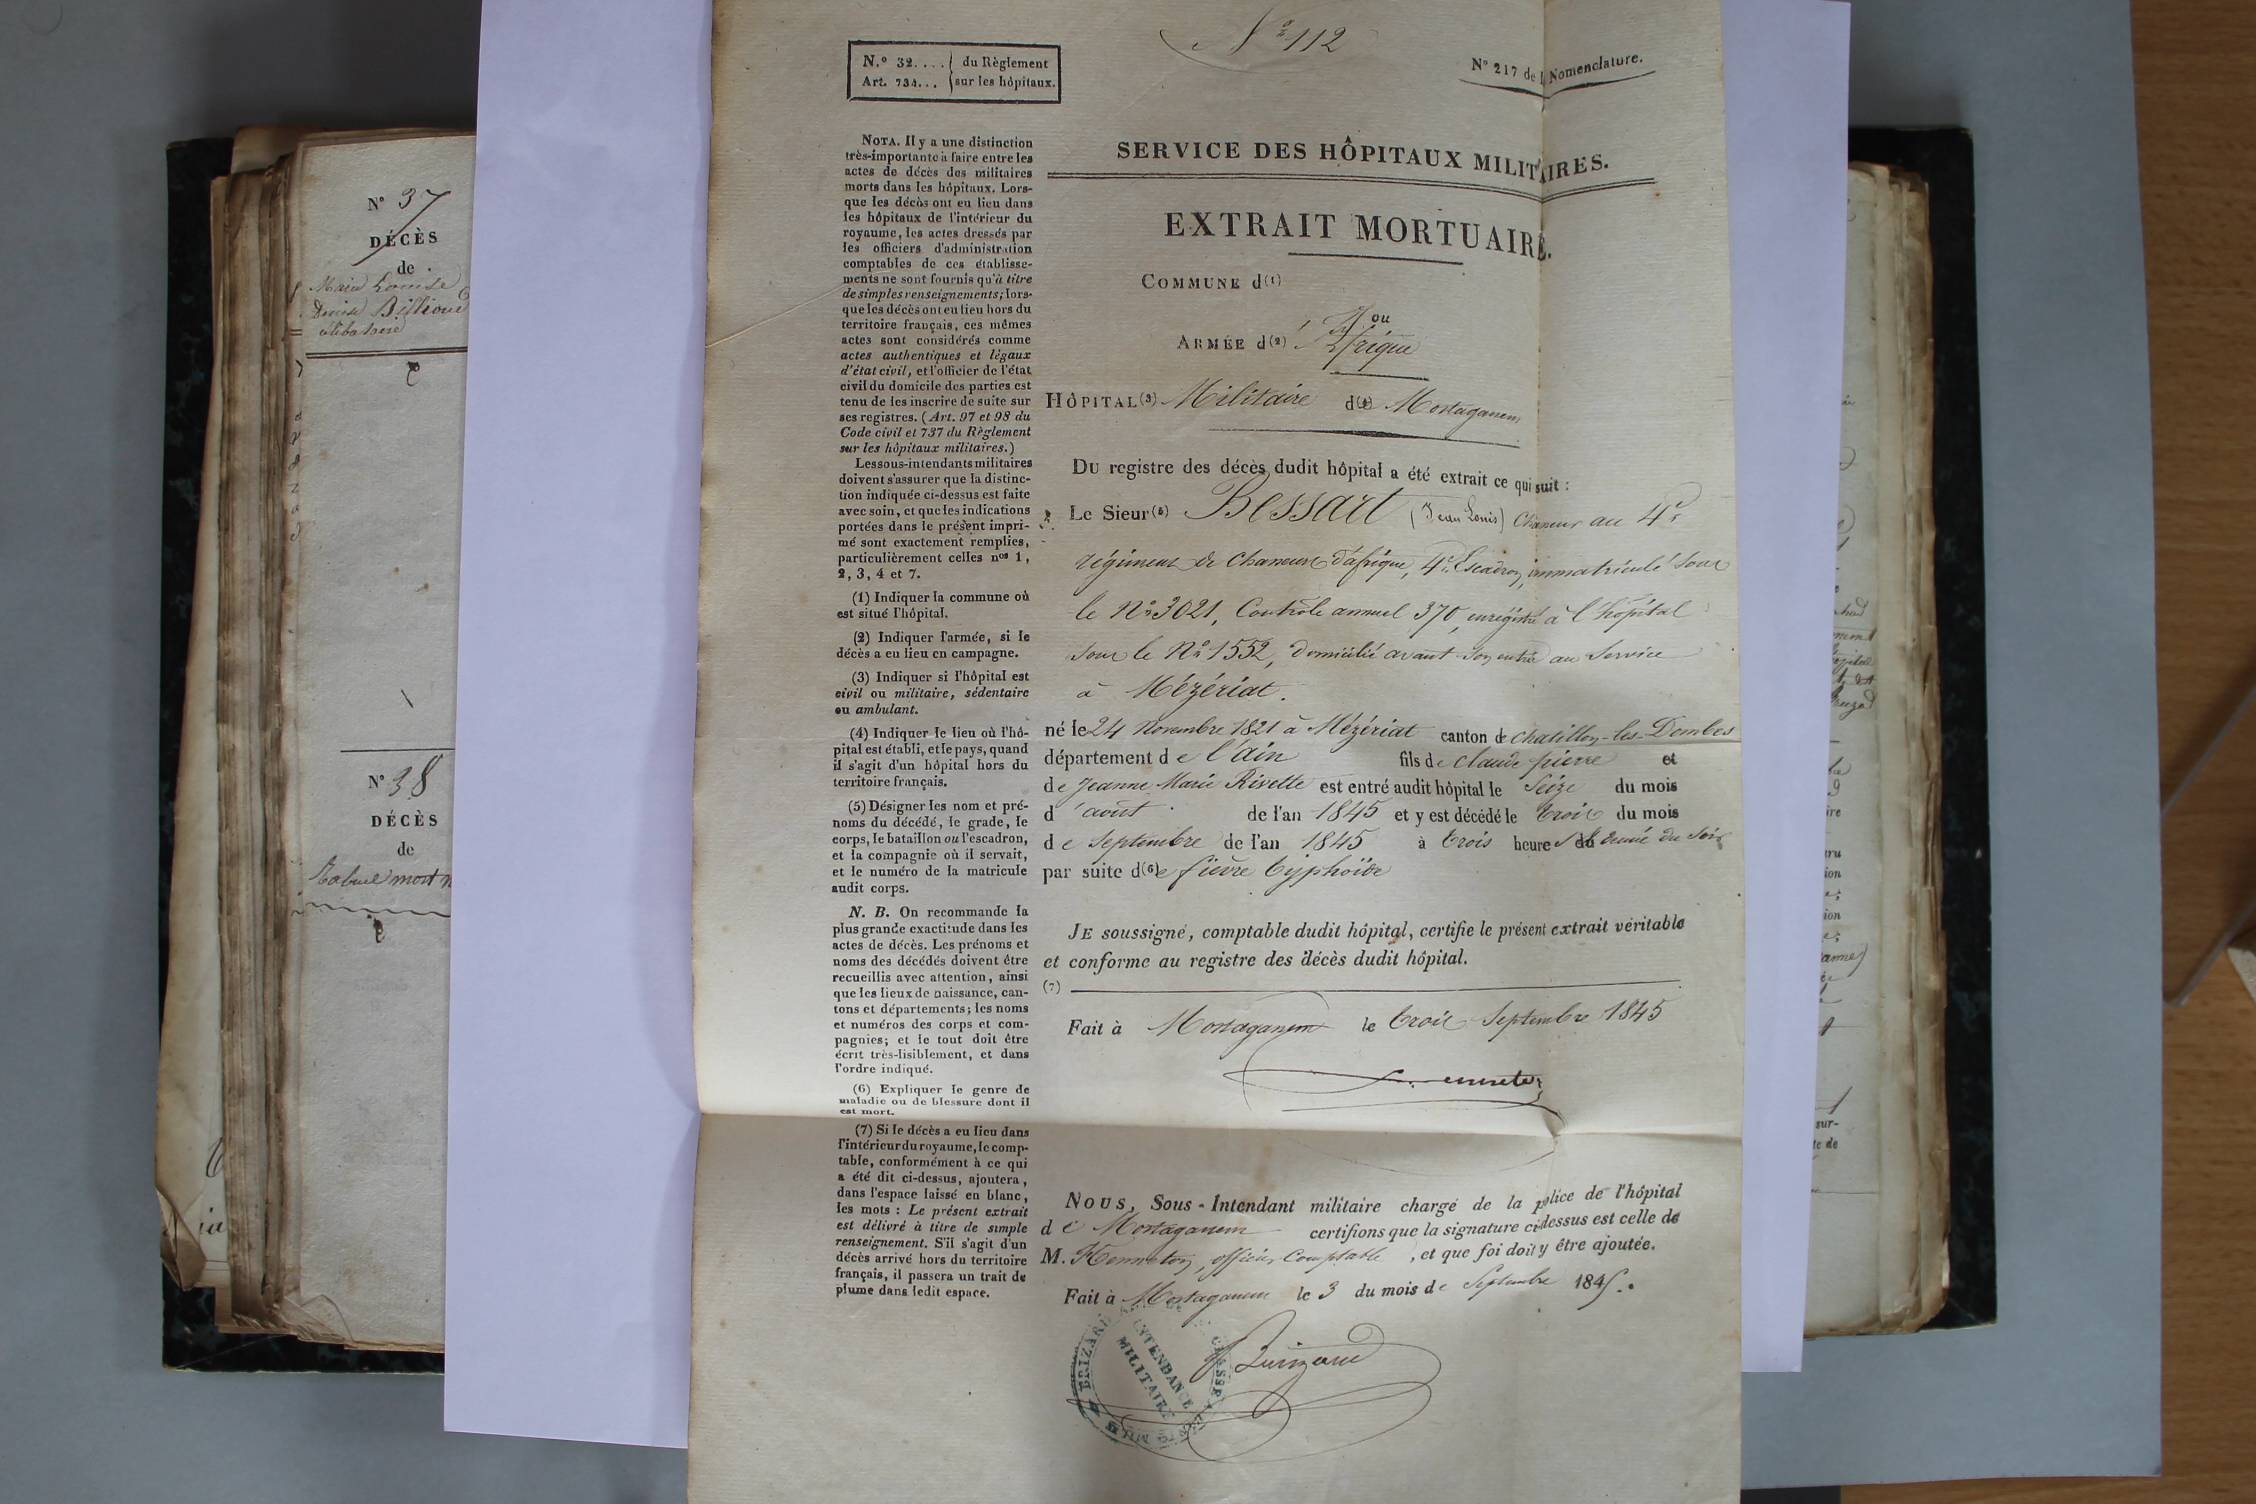 N° 37
DÉCÈS
de
Maria Louise
célibataire
N° 38
DÉCÈS
de
mort
N° 112
N.° 32.... du Règlement
Art. 734... sur les hôpitaux.
N° 217 de la Nomenclature.
SERVICE DES HÔPITAUX MILITAIRES.
EXTRAIT MORTUAIRE.
COMMUNE d(1)
ou
ARMÉE d(2) 'Afrique
HÔPITAL(3) Militaire d(4) Mostaganem
Du registre des décès dudit hôpital a été extrait ce qui suit :
Le Sieur(5) Bessart (Jean Louis) Chasseur au 4e
régiment de Chasseurs d'afrique, 4e Escadron, immatriculé sous
le N° 3021, Contrôle annuel 370, enrégistré à l'hôpital
sous le N° 1552, domicilié avant son entrée au Service
à Mézériat.
né le 24 Novembre 1821 à Mézériat canton de chatillon-les-Dombes
département de l'ain fils de claude pierre et
de Jeanne Marie Rivette est entré audit hôpital le Seize du mois
d'août de l'an 1845 et y est décédé le trois du mois
de Septembre de l'an 1845 à trois heures du soir
par suite d(6)e fièvre typhoïde
JE soussigné, comptable dudit hôpital, certifie le présent extrait véritable
et conforme au registre des décès dudit hôpital.
(7)
Fait à Mostaganem le trois Septembre 1845
NOUS, Sous-Intendant militaire chargé de la police de l'hôpital
de Mostaganem certifions que la signature ci-dessus est celle de
M. Henneton, officier Comptable, et que foi doit y être ajoutée.
Fait à Mostaganem le 3 du mois de Septembre 1845.
BRIZARD
INTENDANCE
MILITAIRE
NOTA. Il y a une distinction
très-importante à faire entre les
actes de décès des militaires
morts dans les hôpitaux. Lors-
que les décès ont eu lieu dans
les hôpitaux de l'intérieur du
royaume, les actes dressés par
les officiers d'administration
comptables de ces établisse-
ments ne sont fournis qu'à titre
de simples renseignements; lors-
que les décès ont eu lieu hors du
territoire français, ces mêmes
actes sont considérés comme
actes authentiques et légaux
d'état civil, et l'officier de l'état
civil du domicile des parties est
tenu de les inscrire de suite sur
ses registres. (Art. 97 et 98 du
Code civil et 737 du Règlement
sur les hôpitaux militaires.)
Les sous-intendants militaires
doivent s'assurer que la distinc-
tion indiquée ci-dessus est faite
avec soin, et que les indications
portées dans le présent impri-
mé sont exactement remplies,
particulièrement celles nos 1,
2, 3, 4 et 7.
(1) Indiquer la commune où
est situé l'hôpital.
(2) Indiquer l'armée, si le
décès a eu lieu en campagne.
(3) Indiquer si l'hôpital est
civil ou militaire, sédentaire
ou ambulant.
(4) Indiquer le lieu où l'hô-
pital est établi, et le pays, quand
il s'agit d'un hôpital hors du
territoire français.
(5) Désigner les nom et pré-
noms du décédé, le grade, le
corps, le bataillon ou l'escadron,
et la compagnie où il servait,
et le numéro de la matricule
audit corps.
N. B. On recommande la
plus grande exactitude dans les
actes de décès. Les prénoms et
noms des décédés doivent être
recueillis avec attention, ainsi
que les lieux de naissance, can-
tons et départements; les noms
et numéros des corps et com-
pagnies; et le tout doit être
écrit très-lisiblement, et dans
l'ordre indiqué.
(6) Expliquer le genre de
maladie ou de blessure dont il
est mort.
(7) Si le décès a eu lieu dans
l'intérieur du royaume, le comp-
table, conformément à ce qui
a été dit ci-dessus, ajoutera,
dans l'espace laissé en blanc,
les mots : Le présent extrait
est délivré à titre de simple
renseignement. S'il s'agit d'un
décès arrivé hors du territoire
français, il passera un trait de
plume dans ledit espace.